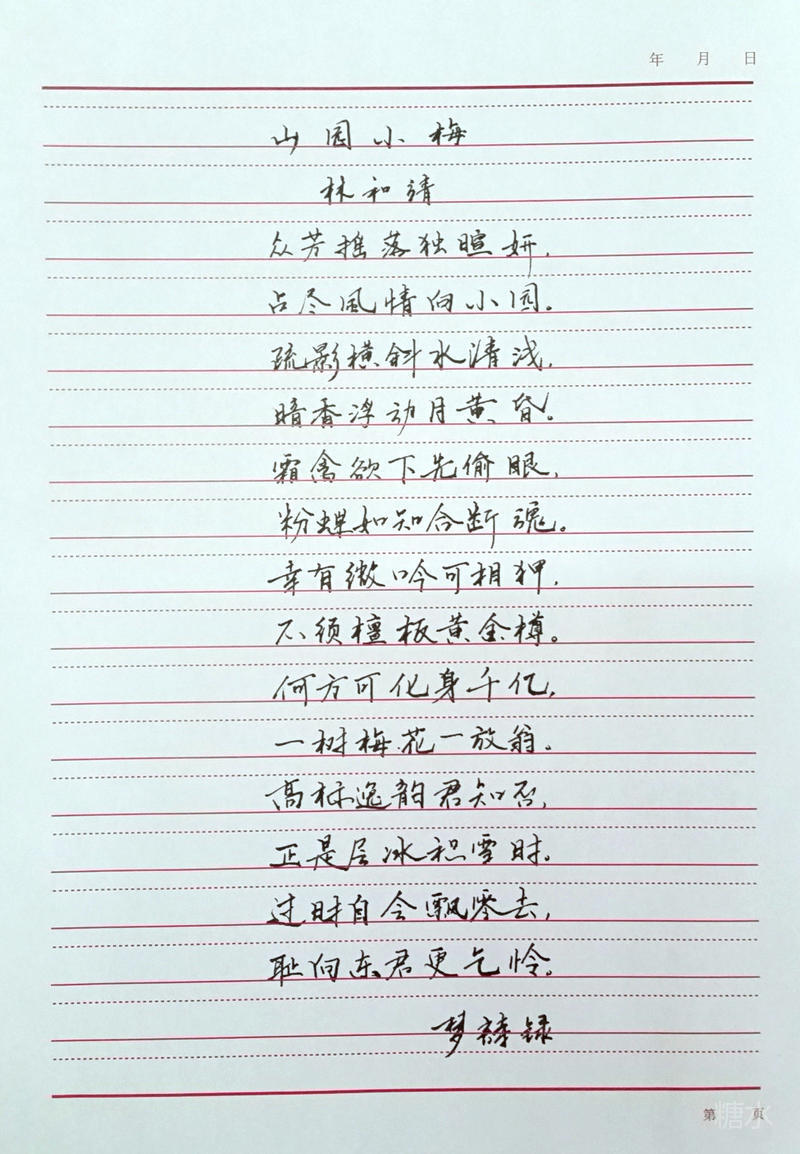 年 月 日
山园小梅
林和靖
众芳摇落独暄妍,
占尽风情向小园。
疏影横斜水清浅,
暗香浮动月黄昏。
霜禽欲下先偷眼,
粉蝶如知合断魂。
幸有微吟可相狎,
不须檀板黄金樽。
何方可化身千亿,
一树梅花一放翁。
高标逸韵君知否,
正是层冰积雪时。
过时自会飘零去,
耻向东君更乞怜。
梦 录
第 页
糖水